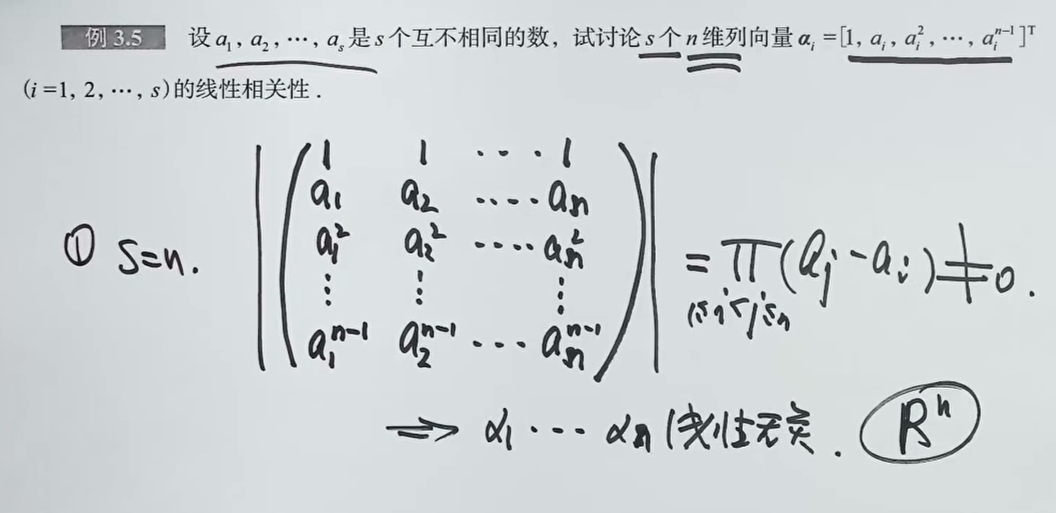 例 3.5 设 a₁, a₂, ⋯, aₛ 是 s 个互不相同的数，试讨论 s 个 n 维列向量 αᵢ =[1, aᵢ, aᵢ², ⋯, aᵢⁿ⁻¹]ᵀ
(i =1, 2, ⋯, s)的线性相关性．
1 1 ⋯ 1
a₁ a₂ ⋯ aₙ
a₁² a₂² ⋯ aₙ²
① s=n. ⋮ ⋮ ⋮ = ∏ (aⱼ - aᵢ) ≠ 0.
1≤i<j≤n
a₁ⁿ⁻¹ a₂ⁿ⁻¹ ⋯ aₙⁿ⁻¹
⟹ α₁ ⋯ αₙ 线性无关. Rⁿ